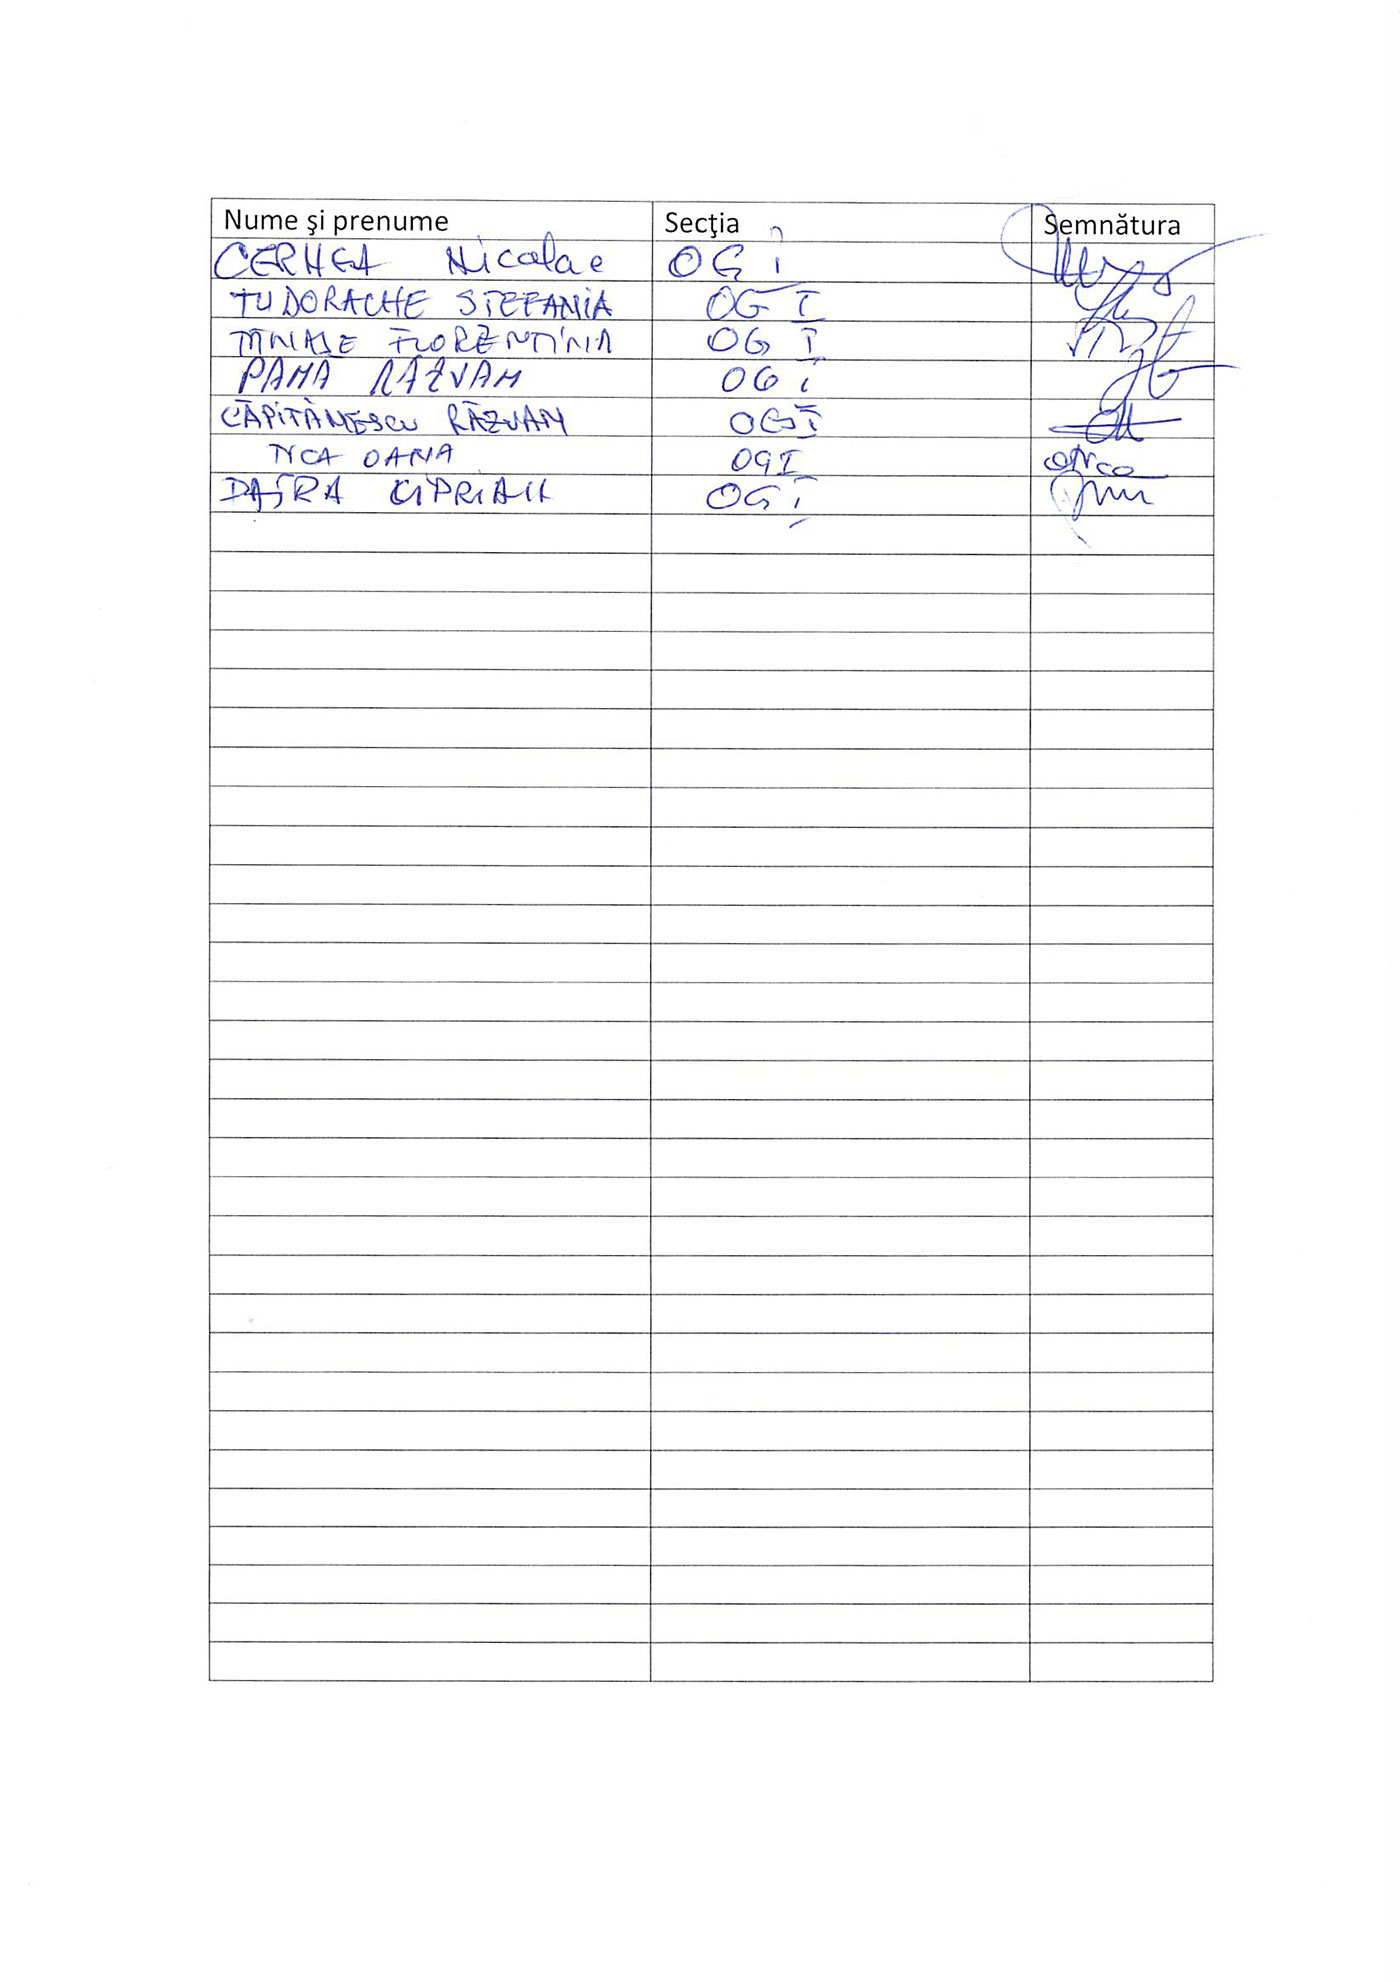 Nume şi prenume Secţia Semnătura
CERNEA Nicolae OG I
TUDORACHE STEFANIA OG I
FLORENTINA OG I
PANA RĂZVAN OG I
CĂPITĂNESCU RĂZVAN OG I
OANA OG I
DAȘRA CIPRIAN OG I